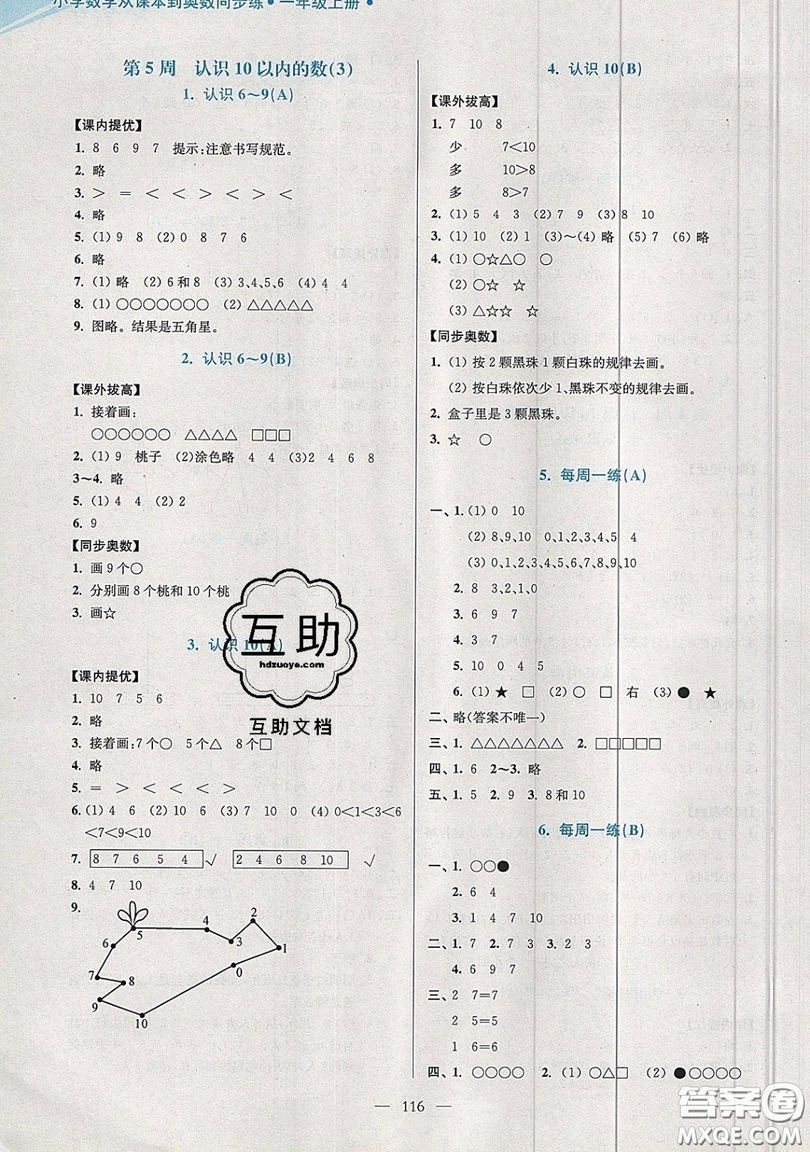 小学数学从课本到奥数同步练·一年级上册·
第5周 认识10以内的数(3)
1. 认识6～9(A)
【课内提优】
1. 8 6 9 7 提示:注意书写规范。
2. 略
3. ＞ ＝ ＜ ＜ ＞ ＜ ＞ ＜
4. 略
5. (1) 9 8 (2) 0 8 7 6
6. 略
7. (1) 略 (2) 6和8 (3) 3、4、5、6 (4) 4
8. (1) ○○○○○○○ (2) △△△△△
9. 图略。结果是五角星。
2. 认识6～9(B)
【课外拔高】
1. 接着画：
○○○○○○ △△△△ □□□
2. (1) 9 桃子 (2)涂色略 4 4 (3) 2 4 6 8
3～4. 略
5. (1) 4 4 (2) 2
6. 9
【同步奥数】
1. 画9个○
2. 分别画8个桃和10个桃
3. 画☆
3. 认识10(A)
【课内提优】
1. 10 7 5 6
2. 略
3. 接着画：7个○ 5个△ 8个□
4. 略
5. ＝ ＞ ＜ ＜ ＜ ＞
6. (1) 4 6 (2) 10 6 (3) 7 10 0 (4) 0＜1＜3＜6
＜7＜9＜10
7. 8 7 6 5 4 √ 2 4 6 8 10 √
8. 4 7 10
9.
5 4 2 3 1 0 6 7 8 9 10
4. 认识10(B)
【课外拔高】
1. 7 10 8
少 7＜10
多 10＞8
多 8＞7
2. (1) 5 4 3 (2) 7 9 (3) 8 10
3. (1) 10 (2) 1 (3)～(4) 略 (5) 7 (6) 略
4. (1) ○☆△○ ○
(2) ○ ☆
(3) △☆☆ ☆
【同步奥数】
1. (1) 按2颗黑珠1颗白珠的规律去画。
(2) 按白珠依次少1、黑珠不变的规律去画。
2. 盒子里是3颗黑珠。
3. ☆ ○
5. 每周一练(A)
一、1. (1) 0 10
(2) 8、9、10 0、1、2、3、4、5 4
(3) 0、1、2、3、4、5、6、7、8、9、10
2. 8 3、2、1、0
3. 6 9 7
4. 3 7
5. 10 0 4 5
6. (1) ★ □ (2) □ □ 右 (3) ● ★
二、略(答案不唯一)
三、1. △△△△△△△ 2. □□□□□
四、1. 6 2～3. 略
五、1. 5 2. 9 3. 8和10
6. 每周一练(B)
一、1. ○○●
2. 6 4
3. 1 4 7 10
二、1. 2 7 2. 7 3 3. 2 3
4. 6 9 7
三、2 7＝7
2 5＝5
1 6＝6
四、1. ○○○○ 2. (1) ○△□ (2) ●○○○○
互助
hdzuoye.com
互助文档
— 116 —
答案圈
MXQE.COM